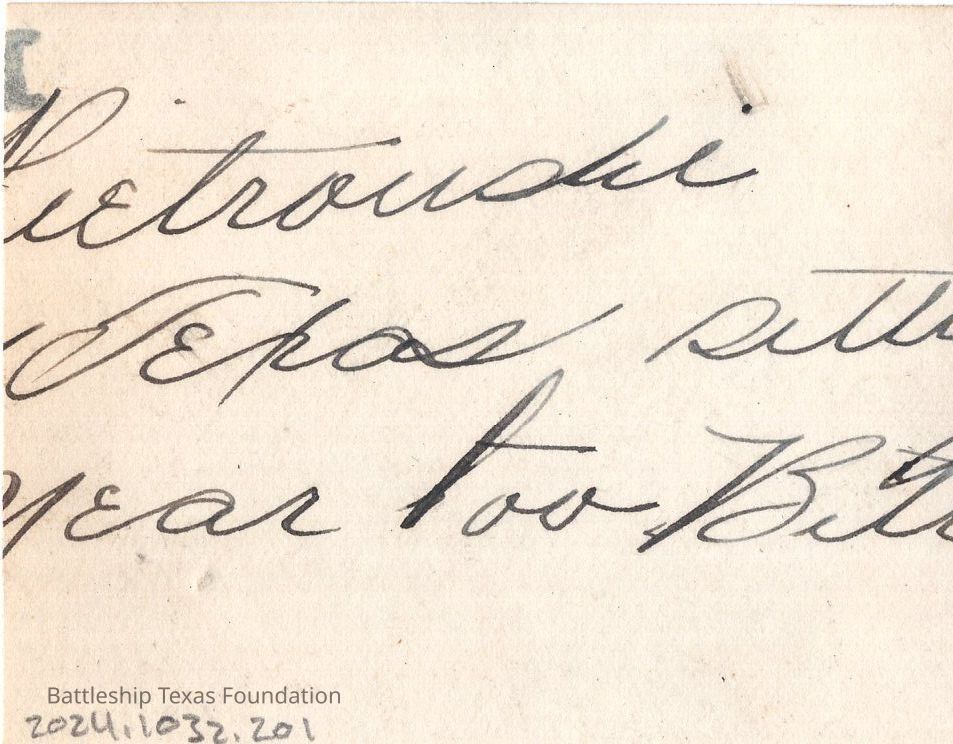 Pietrouski
Texas sitti
year too Bitt
Battleship Texas Foundation
2024.1032.201